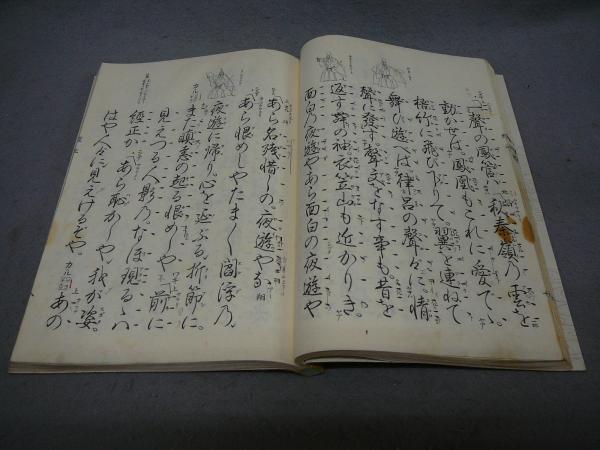 一聲の鳳管ハ。秋秦嶺乃雲を
動かせば。鳳凰もこれに愛て。
梧竹に飛び下りて。翼を連ねて
舞ひ遊へば。律呂の聲々に。情
聲に發す。聲文をなす事も。昔を
返す舞の袖。衣笠山も近かりき。
面白の夜遊やあら面白の夜遊や
あら名残惜しの。夜遊やな
あら恨めしやたま〳〵閻浮乃。
夜遊に帰り。心を延ぶる折節に。
また瞋恚の起る恨めしや 前に
見えつる人影乃。なほ現るゝハ
經正か あら恥かしや。我が姿。
はや人々に見えけるぞや。 あの